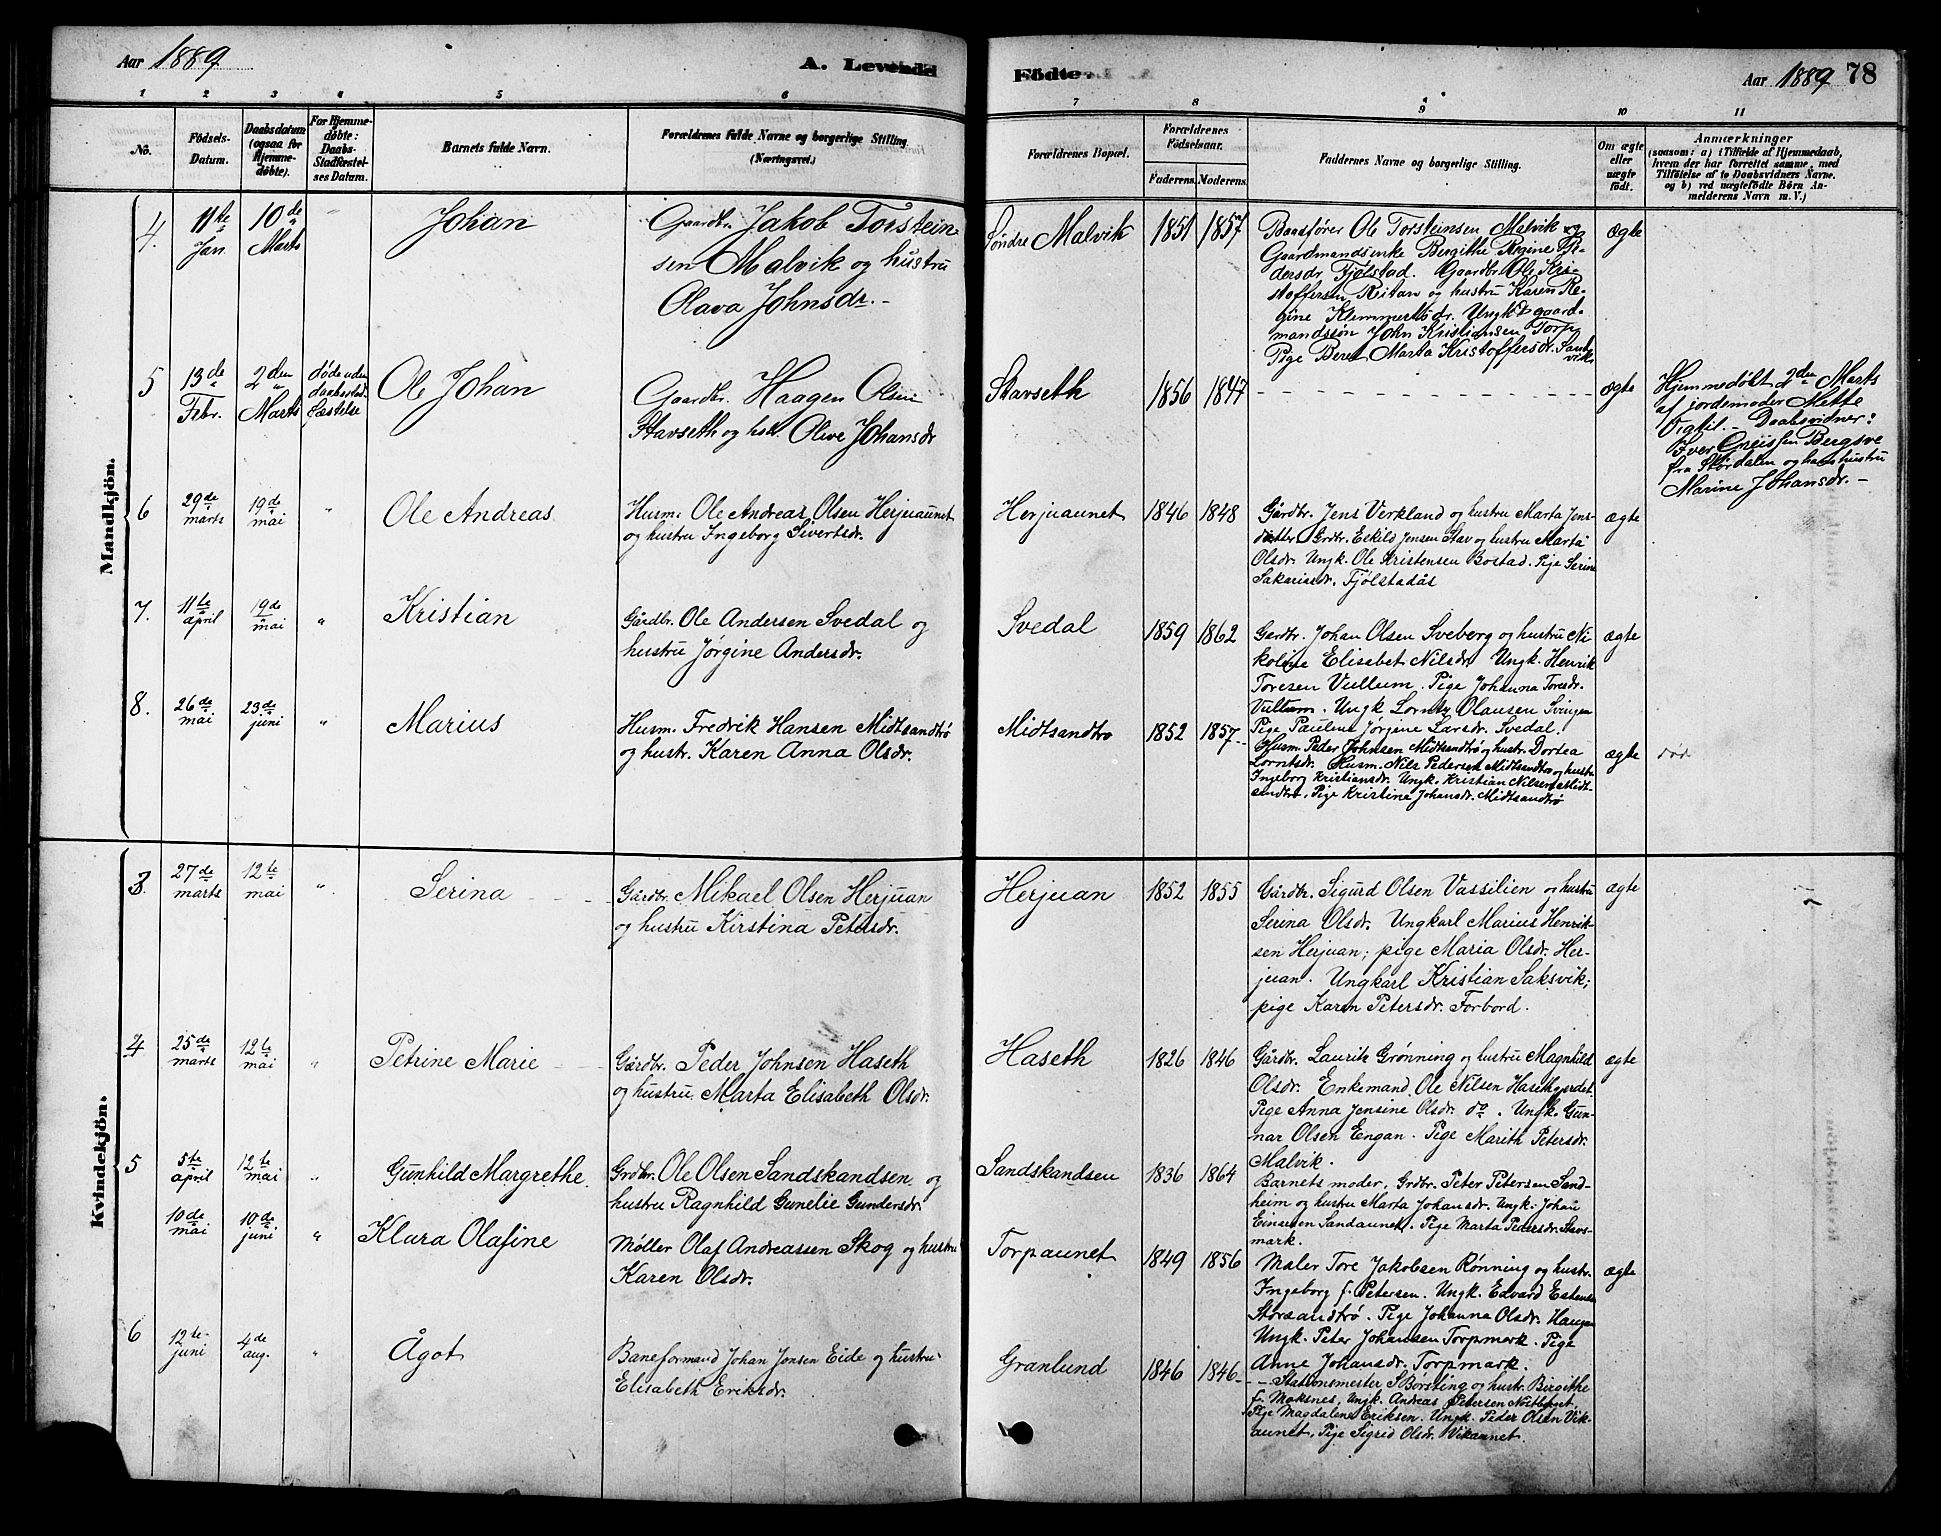 Aar 1889
A. Levende
Födte.
Aar 1889 78
1 2 3 4 5 6 7 8 9 10 11
No.
Födsels-
Datum.
Daabsdatum
(ogsaa for
Hjemme-
døbte).
For Hjemme-
döbte:
Daabs-
Stadfæstel-
ses Datum.
Barnets fulde Navn.
Forældrenes fulde Navne og borgerlige Stilling.
(Næringsvei.)
Forældrenes Bopæl.
Forældrenes
Födselsaar.
Faderens. Moderens.
Faddernes Navne og borgerlige Stilling.
Om ægte
eller
uægte
födt.
Anmærkninger
(saasom: a) i Tilfælde af Hjemmedaab,
hvem der har forrettet samme, med
Tilföielse af to Daabsvidners Navne.
og b) ved uægtefödte Börn An-
melderens Navn m. V.)
Mandkjön.
4. 11te Jan. 10de Marts " Johan
Gaardbr. Jakob Torstein-
sen Malvik og hustru
Olava Johnsdr. -
Søndre Malvik 1851 1857
Ole Torsteinsen Malvik og
Gaardmandsenke Bergithe Regine Pe-
dersdr Fjølstad. Gaardbr. Ole Kri-
stoffersen Reitan og hustru Karen Re-
gine Klemmetsdr. Ungk. gaard-
mandssøn John Kristiansen Torp
Pige Beret Marta Kristoffersdr. Sand-
vik
ægte
5 13de Febr. 2den Marts døde uden
daabsstad-
fæstelse
Ole Johan
Gaardbr. Haagen Olsen
Stavseth og hst. Olive Johansdr
Stavseth 1856 1847 - - - - - ægte
Hjemmedøbt 2den Marts
af jordemoder Mette
Vigtil. - Daabsvidner:
Iver Bergsve
fra Størdalen og hans hustru
Marine Johansdr. -
6 29de marts 19de mai " Ole Andreas
Husm. Ole Andreas Olsen Herjuaunet
og hustru Ingeborg Sivertsdr.
Herjuaunet 1846 1848
Gårdbr. Jens Verkland og hustru Marta Jens-
datter Grdbr. Eskild Jensen Stav og hustru Marta
Olsdr. Ungk. Ole Kristensen Bostad. Pige Serine
Sakariasdr. Fjølstadås
ægte
7. 11te april 19de mai " Kristian
Gårdbr. Ole Andersen Svedal og
hustru Jørgine Andersdr.
Svedal 1859 1862
Gardbr. Johan Olsen Sveberg og hustru Ni-
koline Elisabet Nilsdr. Ungk. Henrik
Toresen Vullum. Pige Johanna Toresdr.
Vullum. Ungk Lorntz Olausen Svingen
Pige Pauline Jørgene Larsdr. Svedal.
ægte
8. 26de mai 23de juni " Marius
Husm. Fredrik Hansen Midtsandtrø
og hustr. Karen Anna Olsdr.
Midtsandtrø 1852 1857
Husm. Peder Johnsen Midtsandtrø og hustr. Dortea
Lorntsdr. Husm. Nils Pedersen Midtsandtrø og hustr.
Ingeborg Kristiansdr. Ungk. Kristian Nilsen Midt-
sandtrø, Pige Kristine Johansdr. Midtsandtrø
ægte død
Kvindekjön.
3 27de marts 12te mai " Serina
Gårdbr. Mikael Olsen Herjuan
og hustru Kirstina Petersdr.
Herjuan 1852 1855
Gårdbr. Sigurd Olsen Vassilien og hustru
Serina Olsdr. Ungkarl Marius Henrik-
sen Herjuan; pige Maria Olsdr. Her-
juan. Ungkarl Kristian Saksvik;
pige Karen Petersdr. Forbord.
ægte
4 25de marts 12te mai " Petrine Marie
Gårdbr. Peder Johnsen Haseth
og hustru Marta Elisabeth Olsdr.
Haseth 1826 1846
Gårdbr. Laurits Grønning og hustru Magnhild
Olsdr. Enkemand Ole Nilsen Hasethgardet
Pige Anna Jensine Olsdr. do. Ungk. Gun-
nar Olsen Engan. Pige Marith Petersdr.
Malvik.
ægte
5 5te april 12te mai " Gunhild Margrethe
Grdbr. Ole Olsen Sandskandsen og
hustru Ragnhild Gunelie Gundersdr.
Sandskandsen 1836 1864
Barnets moder, Grdbr. Peter Petersen Sand-
heim og hustru Marta Johansdr. Ungk. Johan
Einersen Sandaunet. Pige Marta Pedersdr. Stavs-
mark.
10de mai 10de juni " Klara Olafine
Møller Olaf Andreassen Skog og hustru
Karen Olsdr.
Torpaunet 1849 1856
Maler Tore Jakobsen Rønning og hustr.
Ingeborg f. Petersen. Ungk. Edvard Estensen
Storsandtrø. Pige Johanna Olsdr. Haugan
Ungk. Peter Johansen Torpmark. Pige
Anne Johansdr. Torpmark.
ægte
6 12te juni 4de aug. " Ågot
Baneformand Johan Jonsen Eide og hustru
Elisabeth Eriksdr.
Granlund 1846 1846
- Stationsmester S Børsting og hustr. Bergithe
f. Moksnes, Ungk. Andreas Petersen
Pige Magdalene Eriksen. Ungk. Peder Olsen Vik-
aunet, Pige Sigrid Olsdr. Vikaunet.